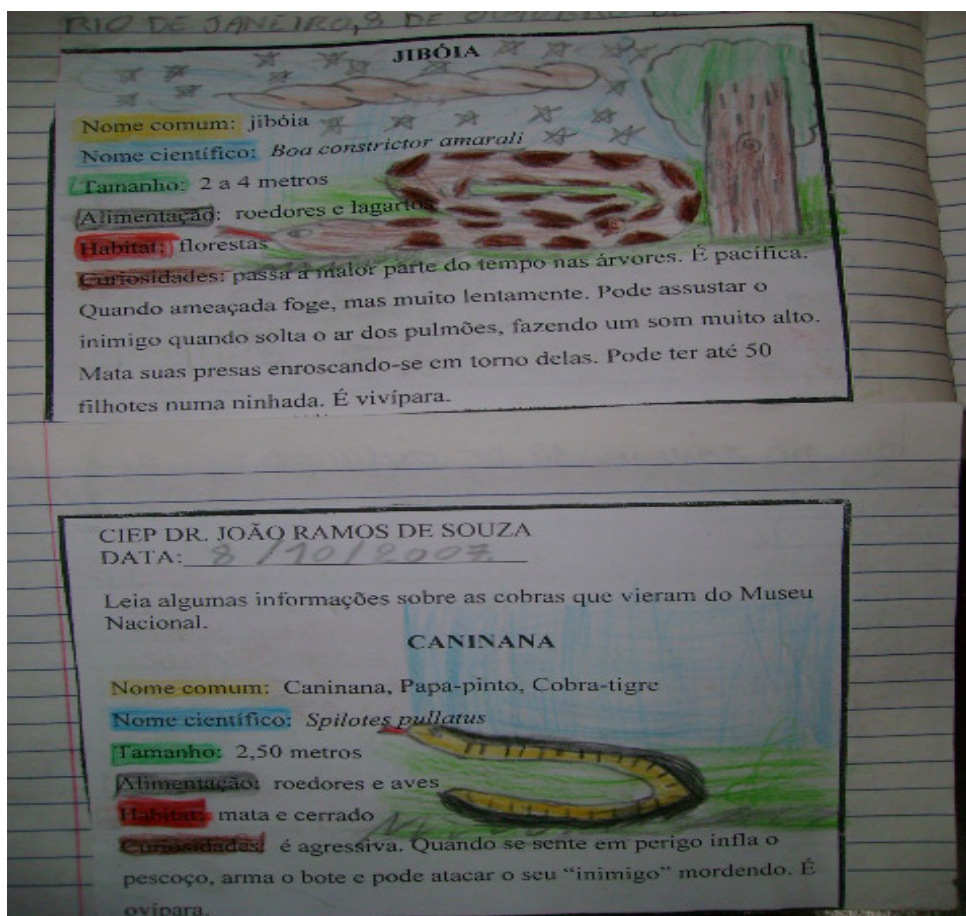 RIO DE JANEIRO, 8 DE OUTUBRO DE
JIBÓIA
Nome comum: jibóia
Nome científico: Boa constrictor amarali
Tamanho: 2 a 4 metros
Alimentação: roedores e lagartos
Habitat: florestas
Curiosidades: passa a maior parte do tempo nas árvores. É pacífica.
Quando ameaçada foge, mas muito lentamente. Pode assustar o
inimigo quando solta o ar dos pulmões, fazendo um som muito alto.
Mata suas presas enroscando-se em torno delas. Pode ter até 50
filhotes numa ninhada. É vivípara.
CIEP DR. JOÃO RAMOS DE SOUZA
DATA: 8/10/2007
Leia algumas informações sobre as cobras que vieram do Museu
Nacional.
CANINANA
Nome comum: Caninana, Papa-pinto, Cobra-tigre
Nome científico: Spilotes pullatus
Tamanho: 2,50 metros
Alimentação: roedores e aves
Habitat: mata e cerrado
Curiosidades: é agressiva. Quando se sente em perigo infla o
pescoço, arma o bote e pode atacar o seu “inimigo” mordendo. É
ovípara.